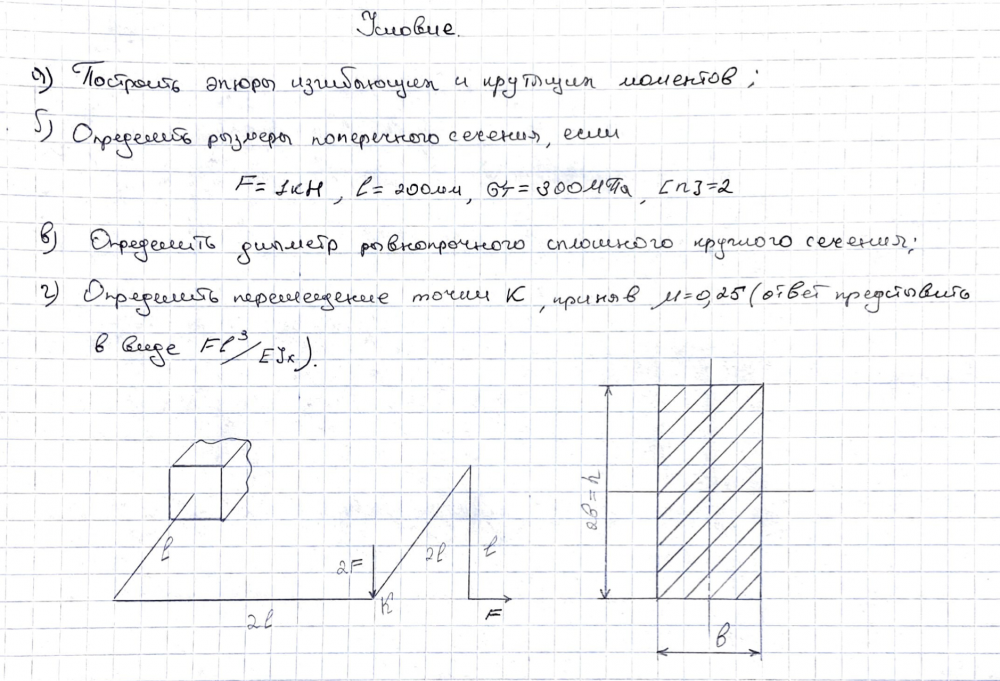 Условие.
а) Построить эпюры изгибающих и крутящих моментов;
б) Определить размеры поперечного сечения, если
F = 1кН, l = 200мм, σт = 300МПа, [n] = 2
в) Определить диаметр равнопрочного сплошного круглого сечения;
г) Определить перемещение точки К, приняв μ=0,25 (ответ представить
в виде Fl³/EJx).
l
2F
K
2l
l
F
2l
2в = h
в